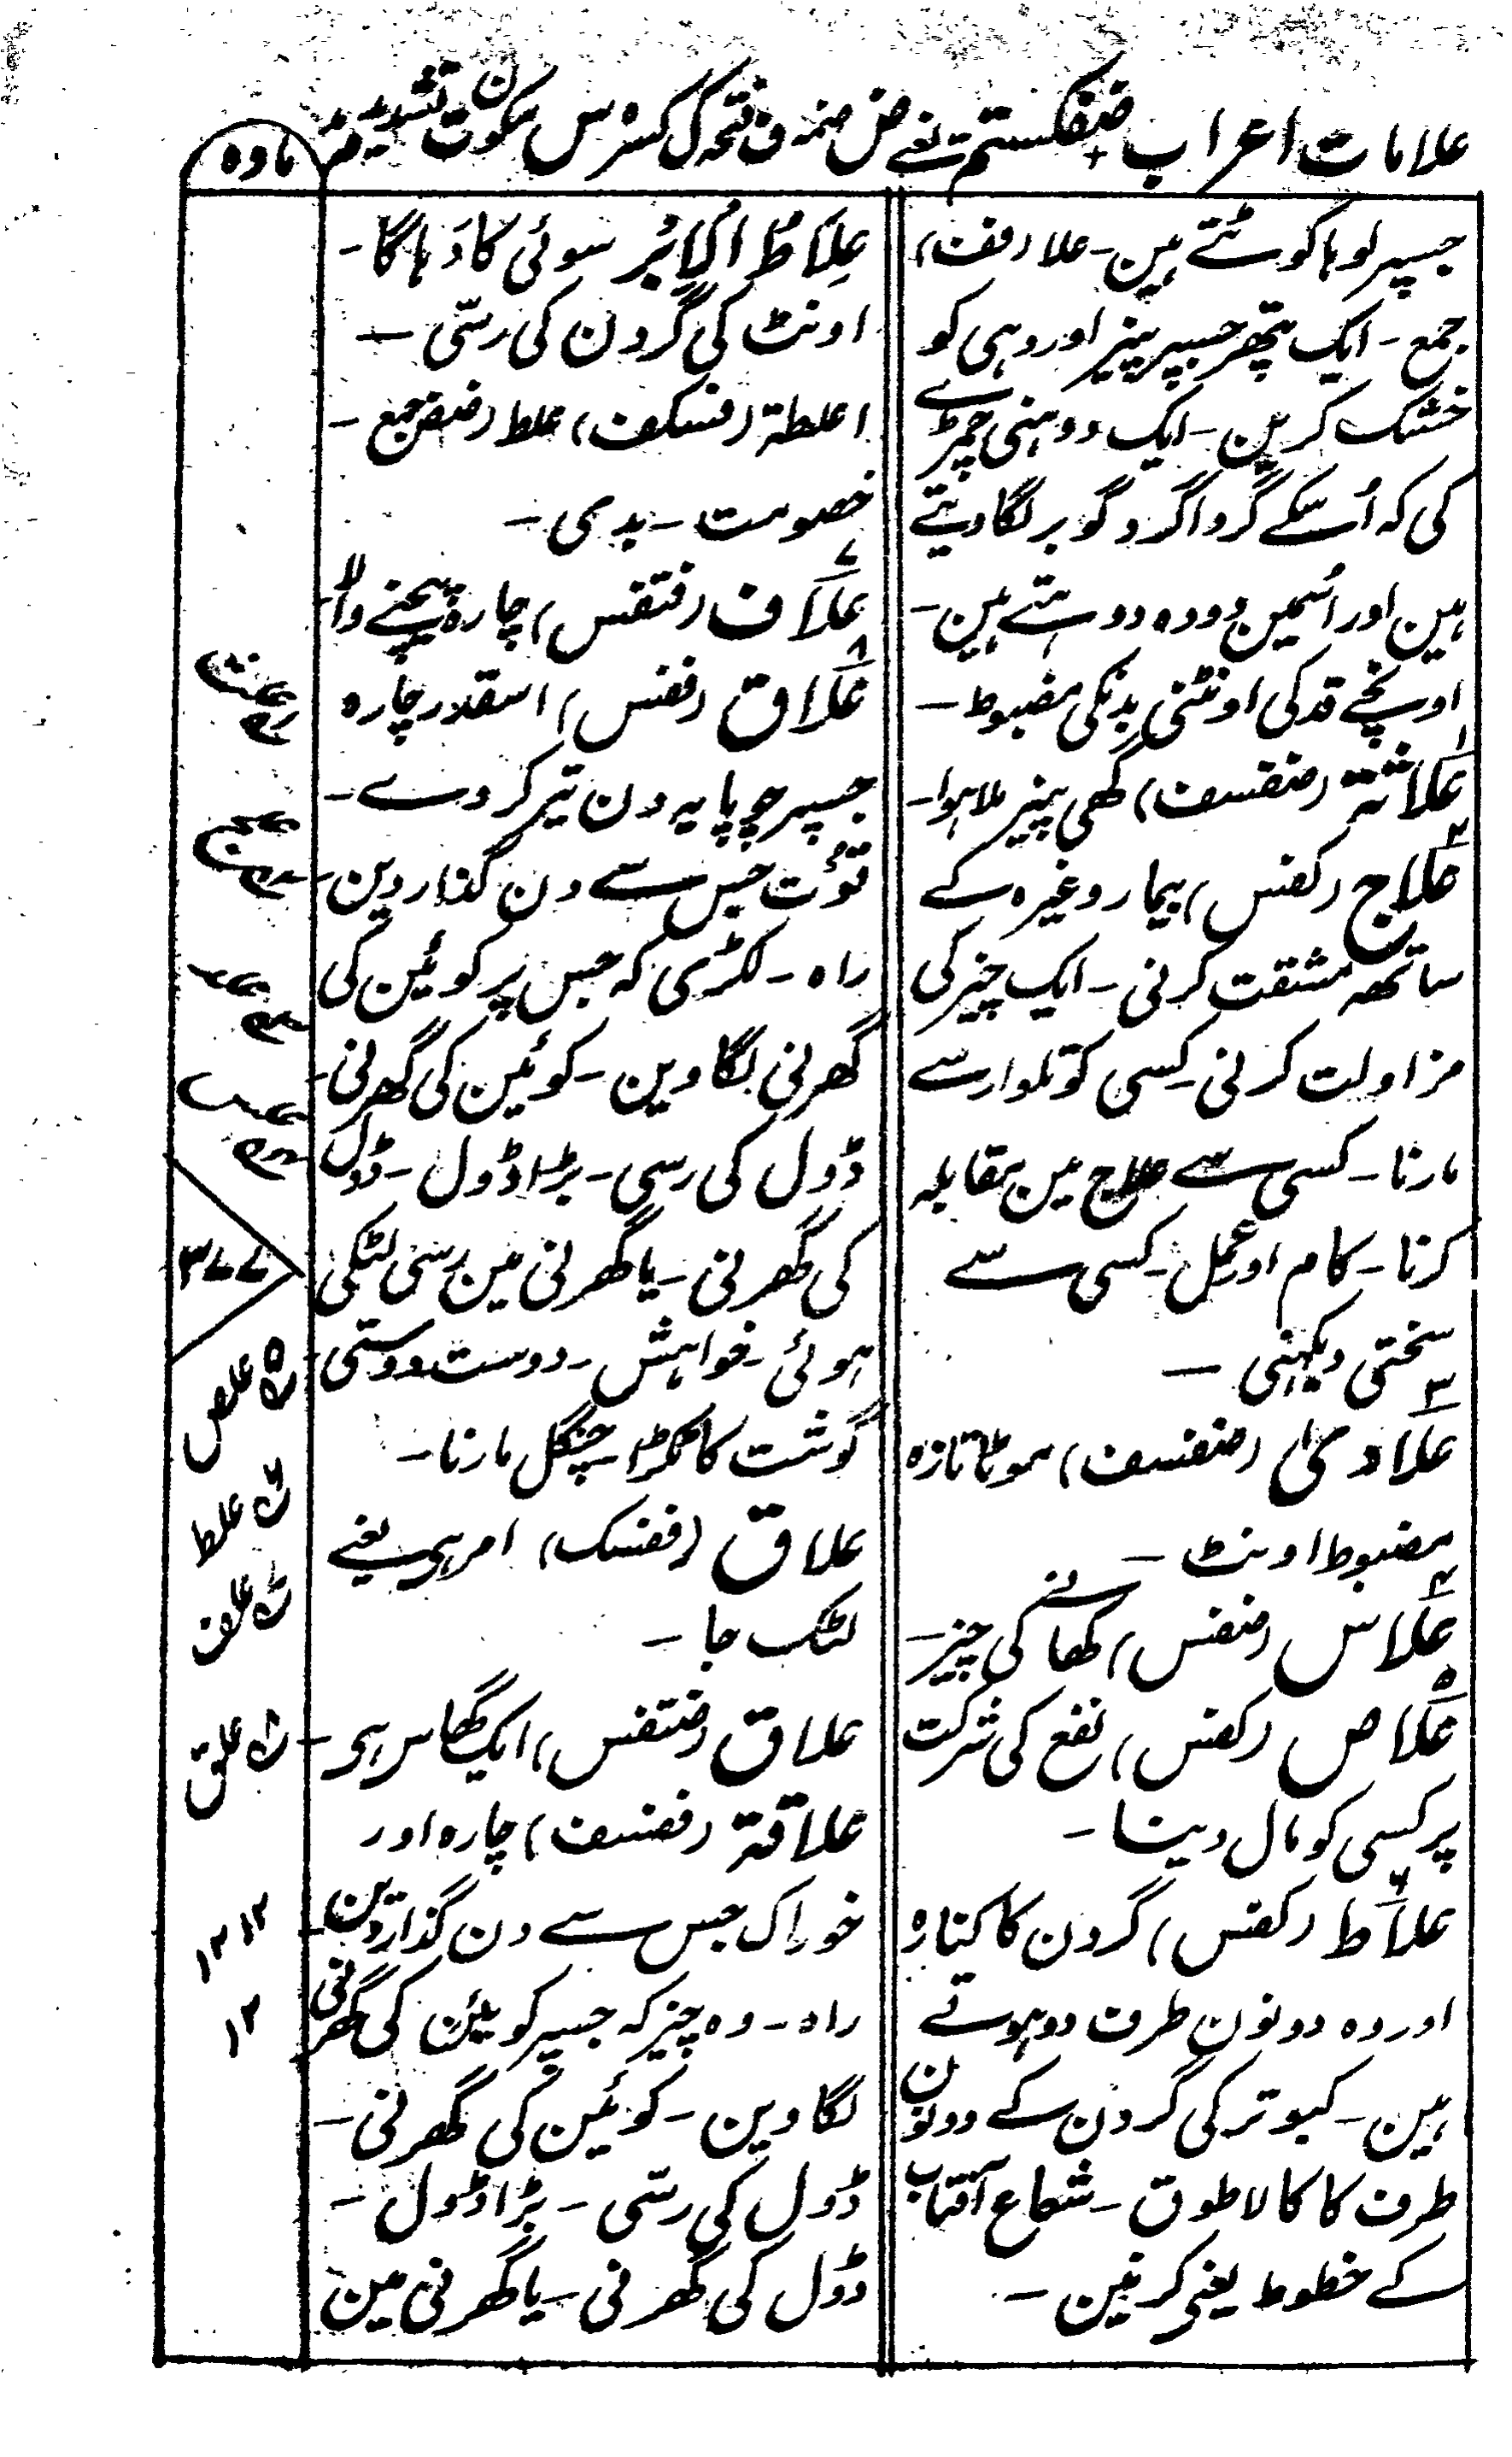 علامات اعراب ضفکستم یعنے ض ضمہ ف فتحہ ک کسرہ س سکون ت تشدید م مد
مادہ
جسپر لوہا کوٹتے ہین - علا (فف)
جمع - ایک پتھر جسپر پنیر اور دہی کو
خشک کرین - ایک دوہنی چمڑے
کی کہ اُسکے گرداگرد گوبر لگا دیتے
ہین اور اُسمین دودہ دوہتے ہین -
اونچے قد کی اونٹنی بدنکی مضبوط -
۱ علاثة (ضفسف) گھی پنیر ملا ہوا -
۲ علاج (کفس) بیمار وغیرہ کے
ساتھہ مشقت کرنی - ایک چیز کی
مزاولت کرنی - کسی کو تلوار سے
مارنا - کسی سے علاج مین مقابلہ
کرنا - کام اور عمل - کسی سے
سختی دیکہنی -
۳ علادی (ضفسف) موٹا تازہ
مضبوط اونٹ -
۴ علاس (ضفس) کھانے کی چیز -
۵ علاص (کفس) نفع کی شرکت
پر کسی کو مال دینا -
۶ علاط (کفس) گردن کا کنارہ
اور وہ دونون طرف دو ہوتے
ہین - کبوتر کی گردن کے دونون
طرف کا کالا طوق - شعاع آفتاب
کے خطوط یعنی کرنین -
عِلَاطُ الاِبَر سوئی کا دَہاگا -
اونٹ کی گردن کی رسّی -
اعلطة (فسکف) علط (ضض) جمع -
خصومت - بدی -
۷ علاف (فتفس) چارہ بیچنے والا
۸ علاق (ففس) اسقدر چارہ
جسپر چوپایہ دن تیر کر دے -
قوُت جس سے دن گذار دین -
راہ - لکڑی کہ جس پر کوئین کی
گھرنی لگا وین - کوئین کی گھرنی -
ڈول کی رسی - بڑا ڈول - ڈول
کی گھرنی - یا گھرنی مین رسی لٹکی
ہوئی - خواہش - دوست دوستی
گوشت کا ٹکڑا - چنگل مارنا -
علاق (ففسک) امر ہی یعنے
لٹک جا -
علاق (ضتفس) ایک گھاس ہی -
علاقة (ففسف) چارہ اور
خوراک جس سے دن گذار دین
راہ - وہ چیز کہ جسپر کوئین کی گھرنی
لگا وین - کوئین کی گھرنی -
ڈول کی رسّی - بڑا ڈول -
ڈول کی گھرنی - یا گھرنی مین
۳۷۷
علص
علط
علف
علق
۱۲
۱۲